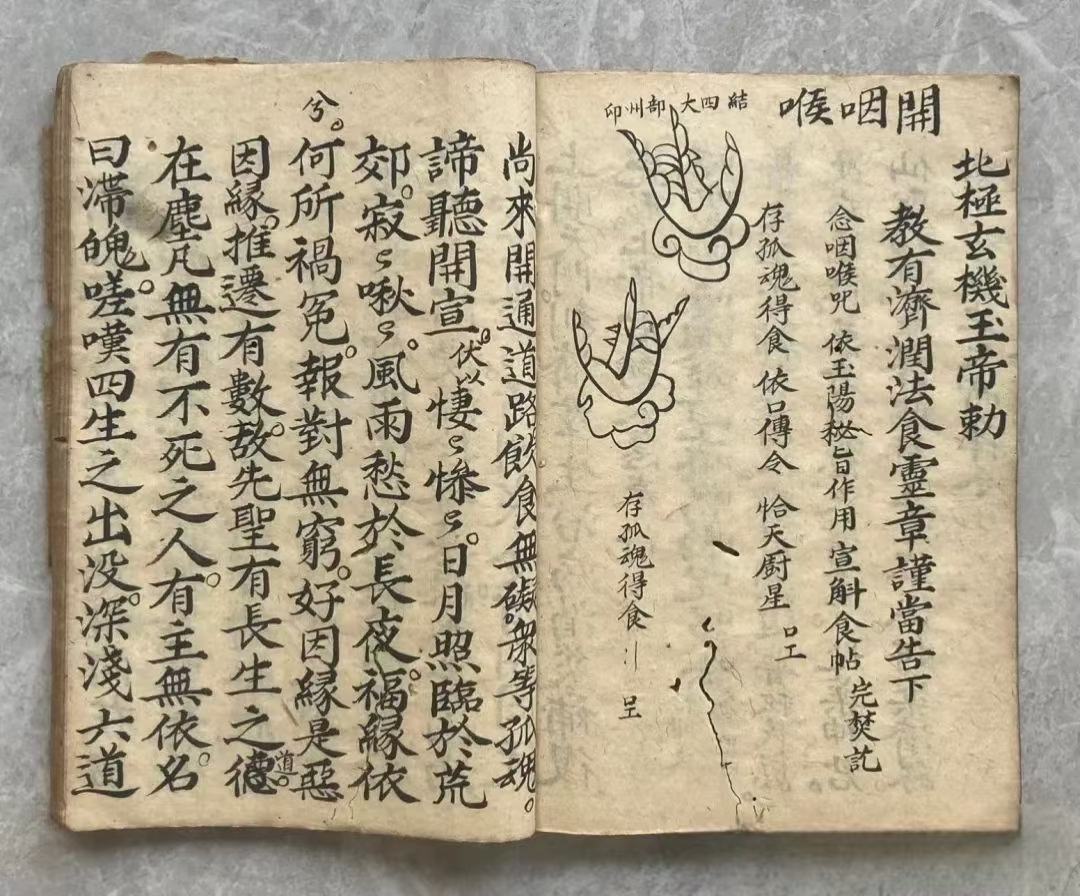 開咽喉
結四大部州印
北極玄機玉帝勅
教有濟潤法食靈章謹當告下
念咽喉咒 依玉陽秘旨作用 宣斛食帖 完焚訖
存孤魂得食 依口傳令 恰天廚星
存孤魂得食
尚來開通道路飲食無礙。衆等孤魂。
諦聽開宣。伏以悽〻慘〻。日月照臨於荒
郊。寂〻啾〻。風雨愁於長夜。福緣依
兮。
何所禍冤。報對無窮。好因緣是惡
因緣。推遷有數。故先聖有長生之德道。
在塵凡無有不死之人。有主無依。名
曰滯魄。嗟嘆四生之出没。深淺六道